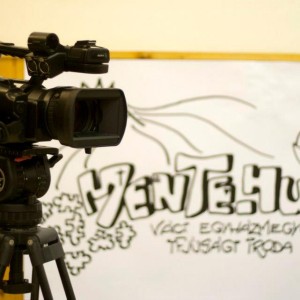 MenTeHu
VÁCI EGYHÁZMEGY
IFJÚSÁGI IRODA